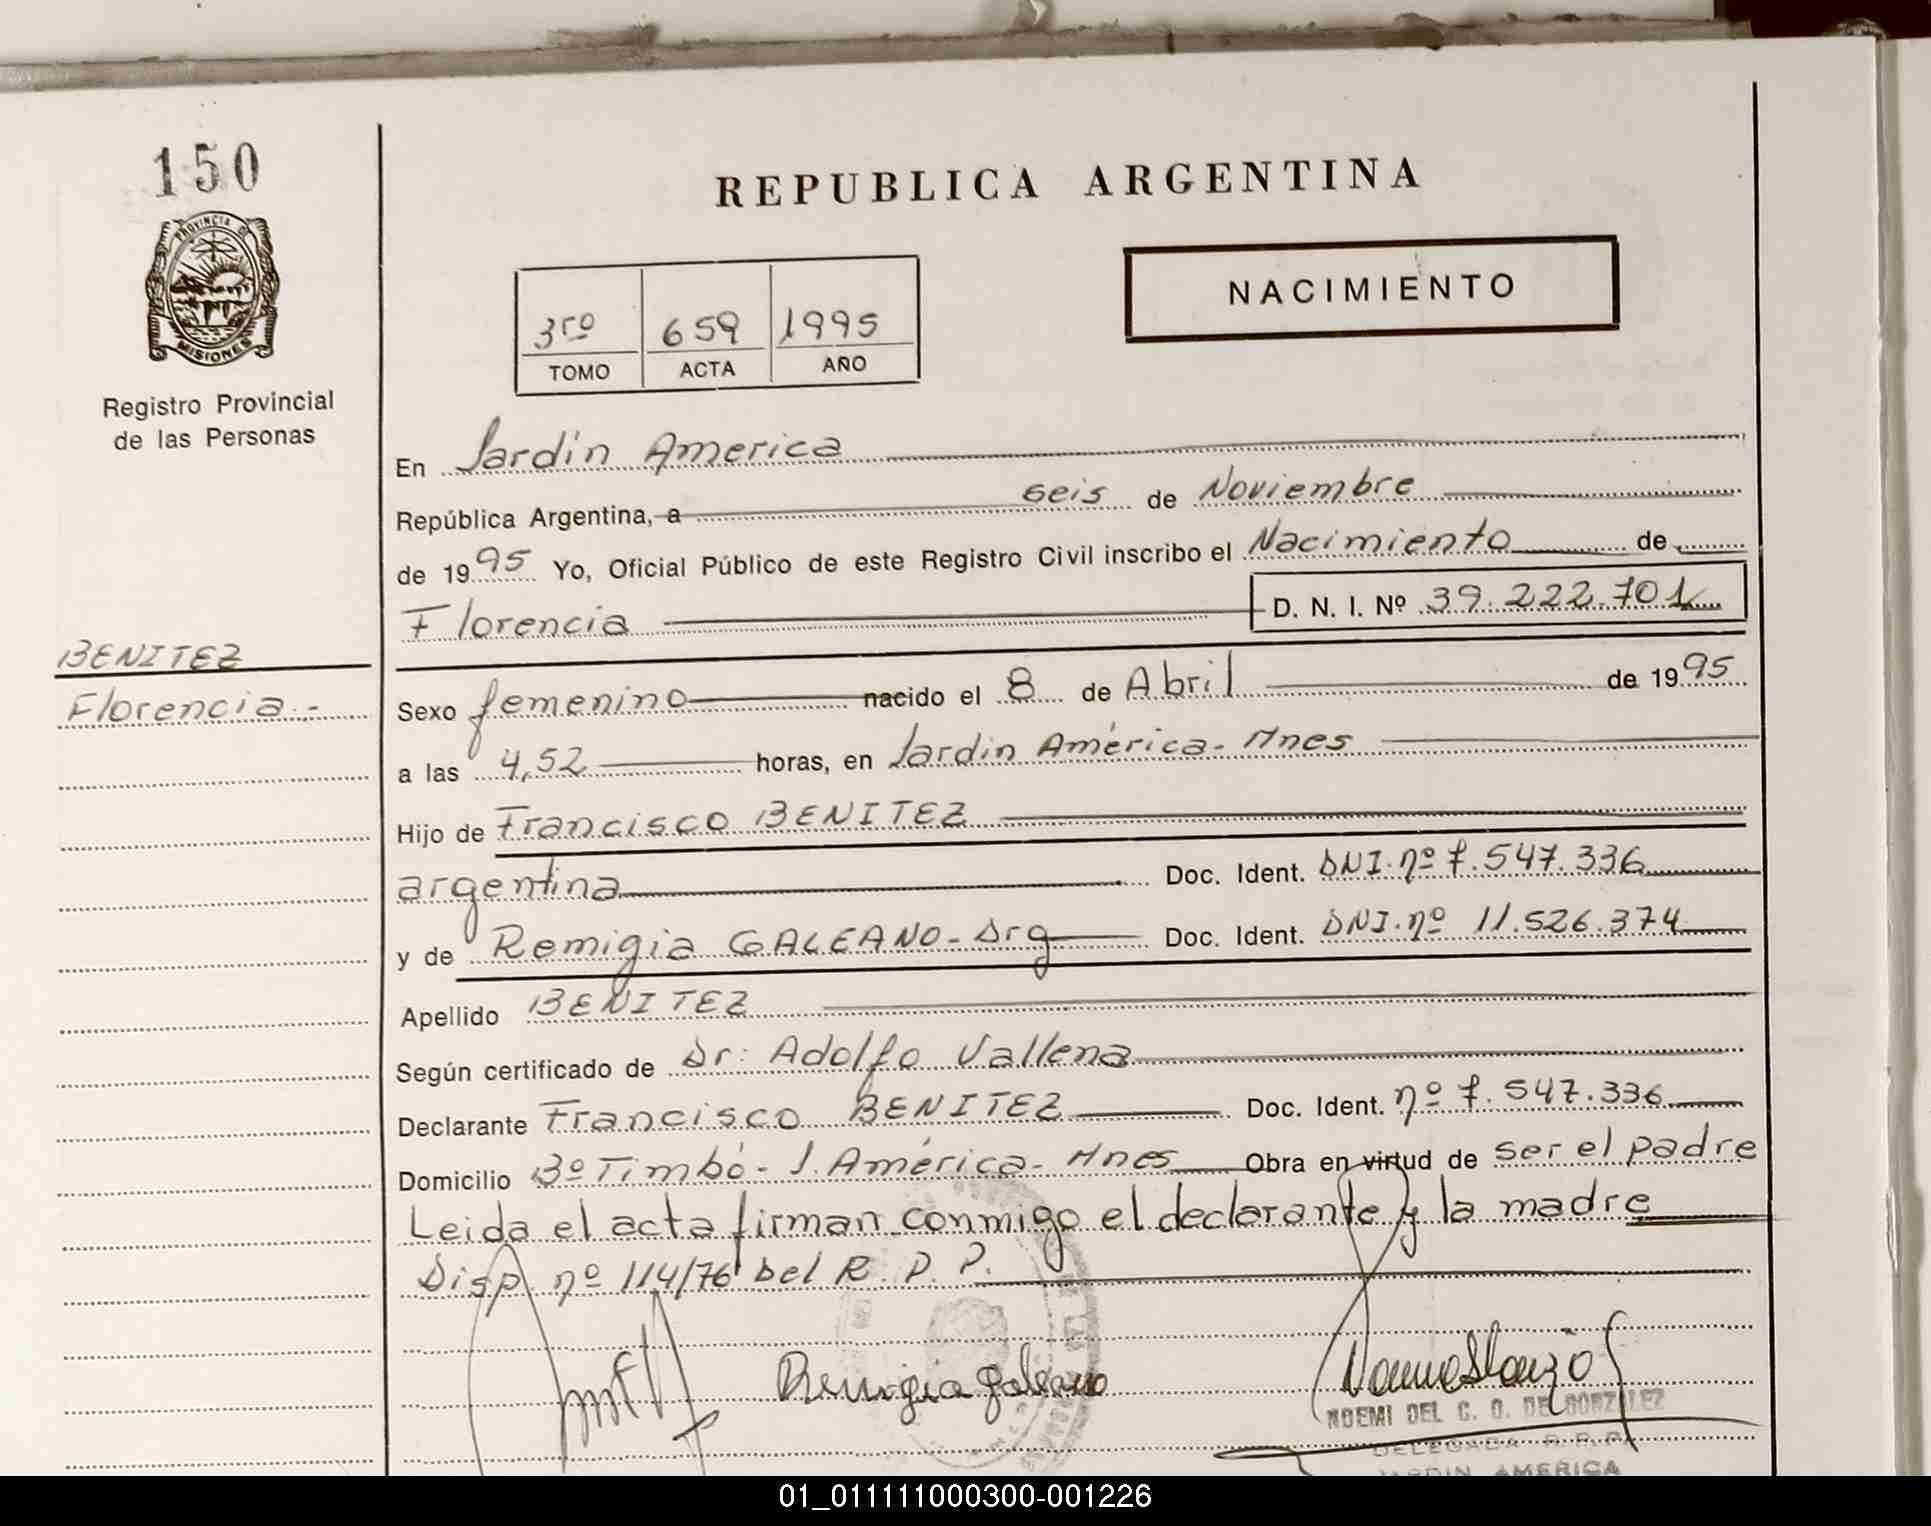 150
PROVINCIA DE
MISIONES
Registro Provincial
de las Personas
REPUBLICA ARGENTINA
NACIMIENTO
3ro 659 1995
TOMO ACTA AÑO
En Jardin America
República Argentina, a seis de Noviembre
de 1995 Yo, Oficial Público de este Registro Civil inscribo el Nacimiento de
Florencia D. N. I. Nº 39.222.701
BENITEZ
Florencia.-
Sexo femenino nacido el 8 de Abril de 1995
a las 4,52 horas, en Jardin América- Mnes
Hijo de Francisco BENITEZ
argentina Doc. Ident. DNI.nº 7.547.336
y de Remigia GALEANO- Arg Doc. Ident. DNI.nº 11.526.374
Apellido BENITEZ
Según certificado de Dr: Adolfo Vallena
Declarante Francisco BENITEZ Doc. Ident. nº 7.547.336
Domicilio Bº Timbó- J. América- Mnes Obra en virtud de ser el padre
Leida el acta firman conmigo el declarante y la madre
Disp. nº 114/76 del R. P. P.
Remigia Galeano
NOEMI DEL C. O. DE GONZALEZ
DELEGADA R. P. P.
JARDIN AMERICA
01_011111000300-001226